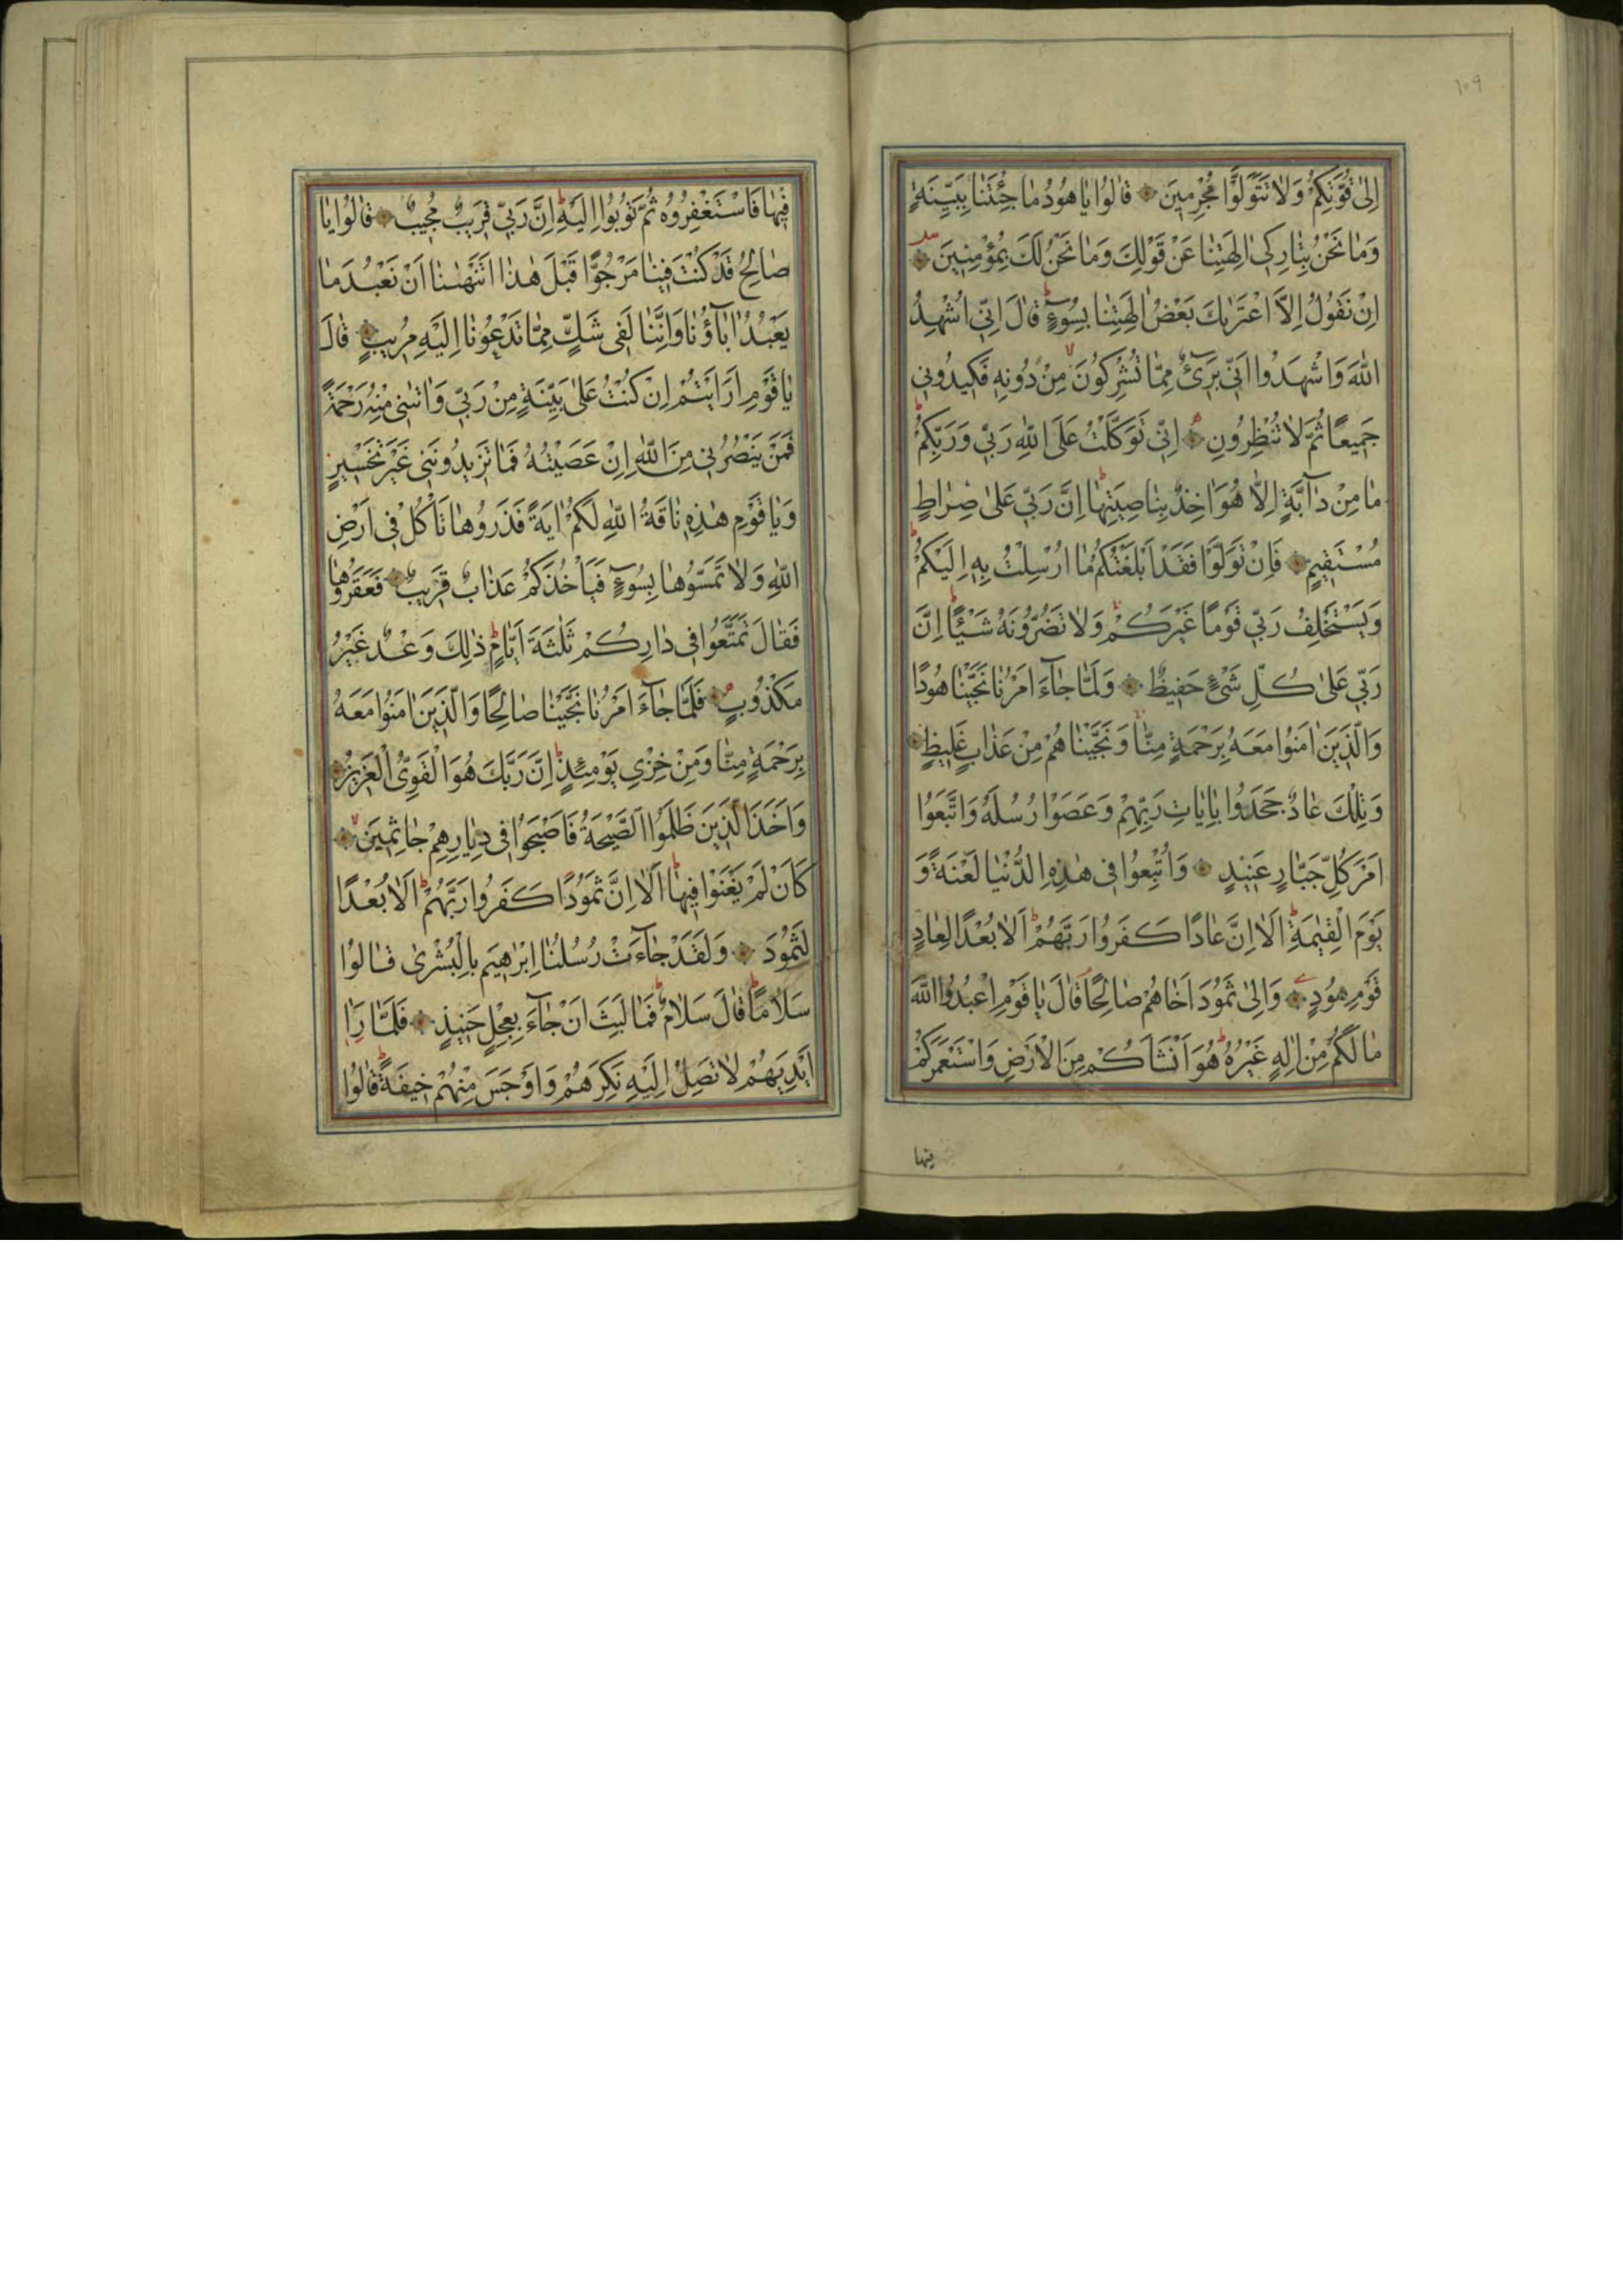 ١٠٩
اِلٰى قُوَّتِكُمْ وَلَا تَتَوَلَّوْا مُجْرِمِينَ قَالُوا يَا هُودُ مَا جِئْتَنَا بِبَيِّنَةٍ
وَمَا نَحْنُ بِتَارِكِى اٰلِهَتِنَا عَنْ قَوْلِكَ وَمَا نَحْنُ لَكَ بِمُؤْمِنِينَ
اِنْ نَقُولُ اِلَّا اعْتَرٰيكَ بَعْضُ اٰلِهَتِنَا بِسُوٓءٍ ط قَالَ اِنِّى اُشْهِدُ
اللّٰهَ وَاشْهَدُوا اَنِّى بَرِىٓءٌ مِمَّا تُشْرِكُونَ لا مِنْ دُونِهِ فَكِيدُونِى
جَمِيعًا ثُمَّ لَا تُنْظِرُونِ اِنِّى تَوَكَّلْتُ عَلَى اللّٰهِ رَبِّى وَرَبِّكُمْ ط
مَا مِنْ دَآبَّةٍ اِلَّا هُوَ اٰخِذٌ بِنَاصِيَتِهَا ط اِنَّ رَبِّى عَلٰى صِرَاطٍ
مُسْتَقِيمٍ فَاِنْ تَوَلَّوْا فَقَدْ اَبْلَغْتُكُمْ مَا اُرْسِلْتُ بِهِ اِلَيْكُمْ ط
وَيَسْتَخْلِفُ رَبِّى قَوْمًا غَيْرَكُمْ وَلَا تَضُرُّونَهُ شَيْئًا ط اِنَّ
رَبِّى عَلٰى كُلِّ شَىْءٍ حَفِيظٌ وَلَمَّا جَآءَ اَمْرُنَا نَجَّيْنَا هُودًا
وَالَّذِينَ اٰمَنُوا مَعَهُ بِرَحْمَةٍ مِنَّا وَنَجَّيْنَاهُمْ مِنْ عَذَابٍ غَلِيظٍ
وَتِلْكَ عَادٌ جَحَدُوا بِاٰيَاتِ رَبِّهِمْ وَعَصَوْا رُسُلَهُ وَاتَّبَعُوا
اَمْرَ كُلِّ جَبَّارٍ عَنِيدٍ وَاُتْبِعُوا فِى هٰذِهِ الدُّنْيَا لَعْنَةً وَ
يَوْمَ الْقِيٰمَةِ ط اَلَا اِنَّ عَادًا كَفَرُوا رَبَّهُمْ ط اَلَا بُعْدًا لِعَادٍ
قَوْمِ هُودٍ وَاِلٰى ثَمُودَ اَخَاهُمْ صَالِحًا قَالَ يَا قَوْمِ اعْبُدُوا اللّٰهَ
مَا لَكُمْ مِنْ اِلٰهٍ غَيْرُهُ ط هُوَ اَنْشَاَكُمْ مِنَ الْاَرْضِ وَاسْتَعْمَرَكُمْ
فيها
فِيهَا فَاسْتَغْفِرُوهُ ثُمَّ تُوبُوا اِلَيْهِ ط اِنَّ رَبِّى قَرِيبٌ مُجِيبٌ قَالُوا يَا
صَالِحُ قَدْ كُنْتَ فِينَا مَرْجُوًّا قَبْلَ هٰذَا اَتَنْهٰينَا اَنْ نَعْبُدَ مَا
يَعْبُدُ اٰبَآؤُنَا وَاِنَّنَا لَفِى شَكٍّ مِمَّا تَدْعُونَا اِلَيْهِ مُرِيبٍ قَالَ
يَا قَوْمِ اَرَاَيْتُمْ اِنْ كُنْتُ عَلٰى بَيِّنَةٍ مِنْ رَبِّى وَاٰتٰينِى مِنْهُ رَحْمَةً
فَمَنْ يَنْصُرُنِى مِنَ اللّٰهِ اِنْ عَصَيْتُهُ فَمَا تَزِيدُونَنِى غَيْرَ تَخْسِيرٍ
وَيَا قَوْمِ هٰذِهِ نَاقَةُ اللّٰهِ لَكُمْ اٰيَةً فَذَرُوهَا تَاْكُلْ فِى اَرْضِ
اللّٰهِ وَلَا تَمَسُّوهَا بِسُوٓءٍ فَيَاْخُذَكُمْ عَذَابٌ قَرِيبٌ فَعَقَرُوهَا
فَقَالَ تَمَتَّعُوا فِى دَارِكُمْ ثَلٰثَةَ اَيَّامٍ ط ذٰلِكَ وَعْدٌ غَيْرُ
مَكْذُوبٍ فَلَمَّا جَآءَ اَمْرُنَا نَجَّيْنَا صَالِحًا وَالَّذِينَ اٰمَنُوا مَعَهُ
بِرَحْمَةٍ مِنَّا وَمِنْ خِزْىِ يَوْمِئِذٍ ط اِنَّ رَبَّكَ هُوَ الْقَوِىُّ الْعَزِيزُ
وَاَخَذَ الَّذِينَ ظَلَمُوا الصَّيْحَةُ فَاَصْبَحُوا فِى دِيَارِهِمْ جَاثِمِينَ لا
كَاَنْ لَمْ يَغْنَوْا فِيهَا ط اَلَا اِنَّ ثَمُودًا كَفَرُوا رَبَّهُمْ ط اَلَا بُعْدًا
لِثَمُودَ وَلَقَدْ جَآءَتْ رُسُلُنَا اِبْرٰهِيمَ بِالْبُشْرٰى قَالُوا
سَلَامًا ط قَالَ سَلَامٌ ط فَمَا لَبِثَ اَنْ جَآءَ بِعِجْلٍ حَنِيذٍ فَلَمَّا رَاٰ
اَيْدِيَهُمْ لَا تَصِلُ اِلَيْهِ نَكِرَهُمْ وَاَوْجَسَ مِنْهُمْ خِيفَةً ط قَالُوا